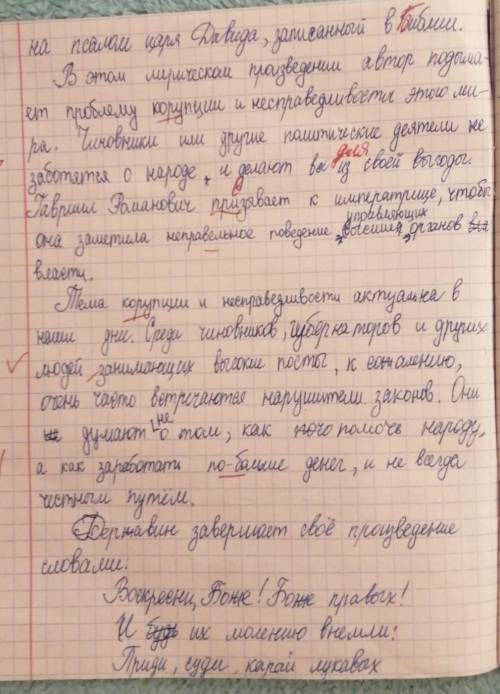 на псалом царя Давида, записанный в Библии.
В этом лирическом произведении автор подыма-
ет проблему корупции и несправедливости этого ми-
ра. Чиновники или другие политические деятели не
заботятся о народе, и делают все для из своей выгоды.
Гавриил Романович призывает к императрице, чтобы
управляющих
она заметила неправельное поведение высших органов
власти.
Тема корупции и несправедливости актуальна в
наши дни. Среди чиновников, губернаторов и других
людей занимающих высокие посты, к сожалению,
очень часто встречаются нарушители законов. Они
думают не о том, как помочь народу,
а как заработать по-больше денег, и не всегда
честным путём.
Державин завершает своё произведение
словами:
Воскресни, Боже! Боже правых!
И будь их молению внемли:
Приди, суди, карай лукавых